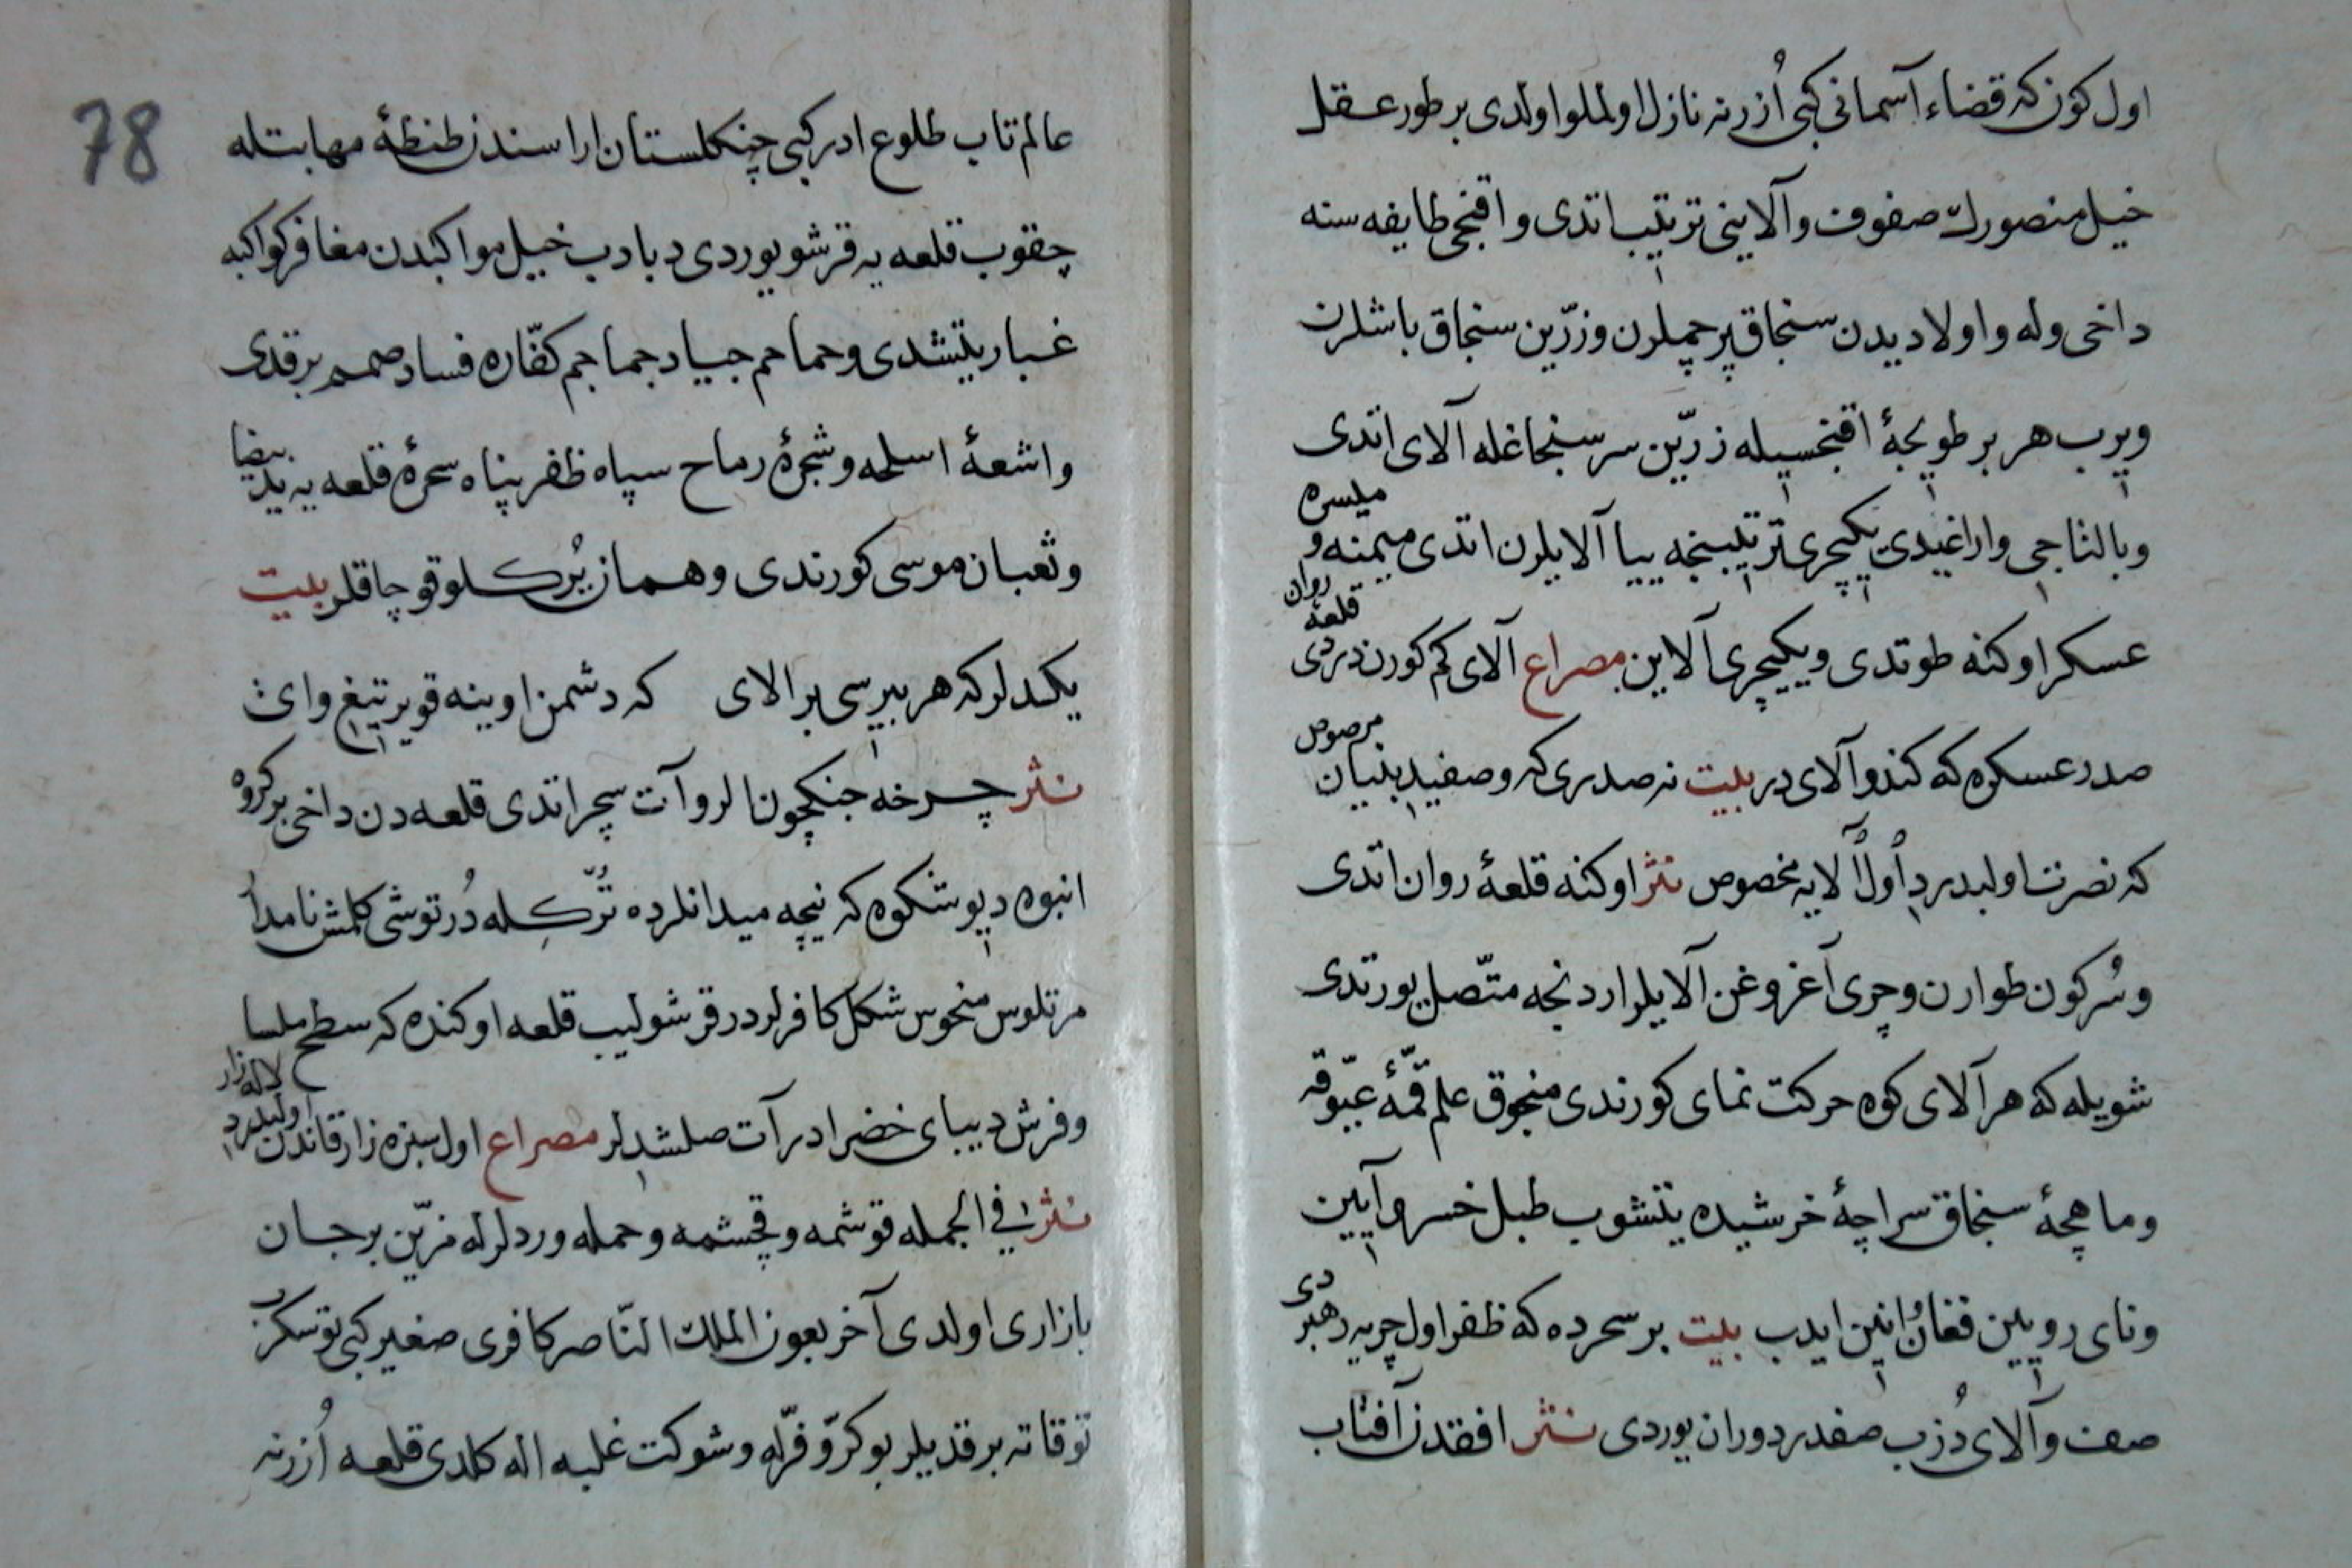 اول كون كه قضاء آسمانی كبی اُزرنه نازل اولملو اولدی بر طور عقل
خیل منصورك صفوف وآلاینی ترتیب اتدی واقنجی طایفه سنه
داخی وله واولادیدن سنجاق پرچملرن وزرّین سنجاق باشلرن
ویرب هر بر طویجهٔ اقنجسیله زرّین سر سنجاغله آلای اتدی
وبالثاجی واراغیدی یكیچری ترتیبنجه ییا آلایلرن اتدی میمنه و میسره
عسكر اوكنه طوتدی ویكیچری آلاین مصراع آلای كم كورن دردی قلعهٔ روان
صدر عسكره كه كندو آلای در بیت نه صدری كه وصفیدر بنیان مرصوص
كه نصرت اولیدرد اُول اُلایه مخصوص نثر اوكنه قلعهٔ روان اتدی
وسُركون طوارن وچری آغروغن آلایلر اردنجه متّصل یورتدی
شویله كه هر آلای كوه حركت نمای كورندی منجوق علم قمّهٔ عیّوقه
وماهچهٔ سنجاق سراچهٔ خرشیده یتشوب طبل خسرو آیین
ونای رویین فغان انین ایدب بیت بر سحرده كه ظفر اول چریه رهبردی
صف وآلای دُزب صفدر دوران یوردی نثر افقدن آفتاب
78
عالم تاب طلوع ادر كبی چنكلستان اراسندن طنطنهٔ مهابتله
چقوب قلعه یه قرشو یوردی دبادب خیل مواكبدن مغافر كواكبه
غبار یتشدی وحماحم جیاد جماجم كفّاره فساد صمم برقدی
واشعهٔ اسلحه وشجرهٔ رماح سپاه ظفر پناه سحرهٔ قلعه یه ید بیضا
وثعبان موسی كورندی وهمان یُركلو قوچاقلر بیت
یكدلر كه هر بیرسی بر الای كه دشمن اوینه قویر تیغ وای
نثر چرخه جنكچون الر وآت سچر اتدی قلعه دن داخی بر كروه
انبوه دیو شكوه كه نیچه میدانلرده تُرّكله دُرتوشی كلمش نامدار
مرتلوس منحوس شكل كافرلر در قرشولیب قلعه اوكنده كه سطح ملسا
وفرش دیبای خضرا در آت صلشدلر مصراع اول سبزه زار قاندن لاله زار اولیدرد
نثر فی الجمله قوشمه وقچشمه وحمله وردلرله مزیّن بر جان
بازاری اولدی آخر بعون الملك النّاصر كافری صغیر كبی توسكرب
توقاته برقدیلر بو كرّ وفرّله وشوكت غلبه اله كلدی قلعه اُزرنه